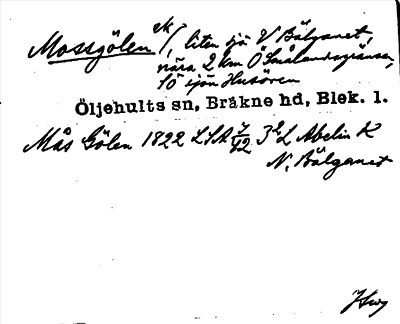 Mossgölen ek /, liten sjö V Bälganet,
nära 2 km Ö Smålandsgränsen,
SÖ sjön Husören
Öljehults sn, Bräkne hd, Blek. l.
Mås Gölen 1822 LSA 7/42 3²L Abelin K
N. Bälganet